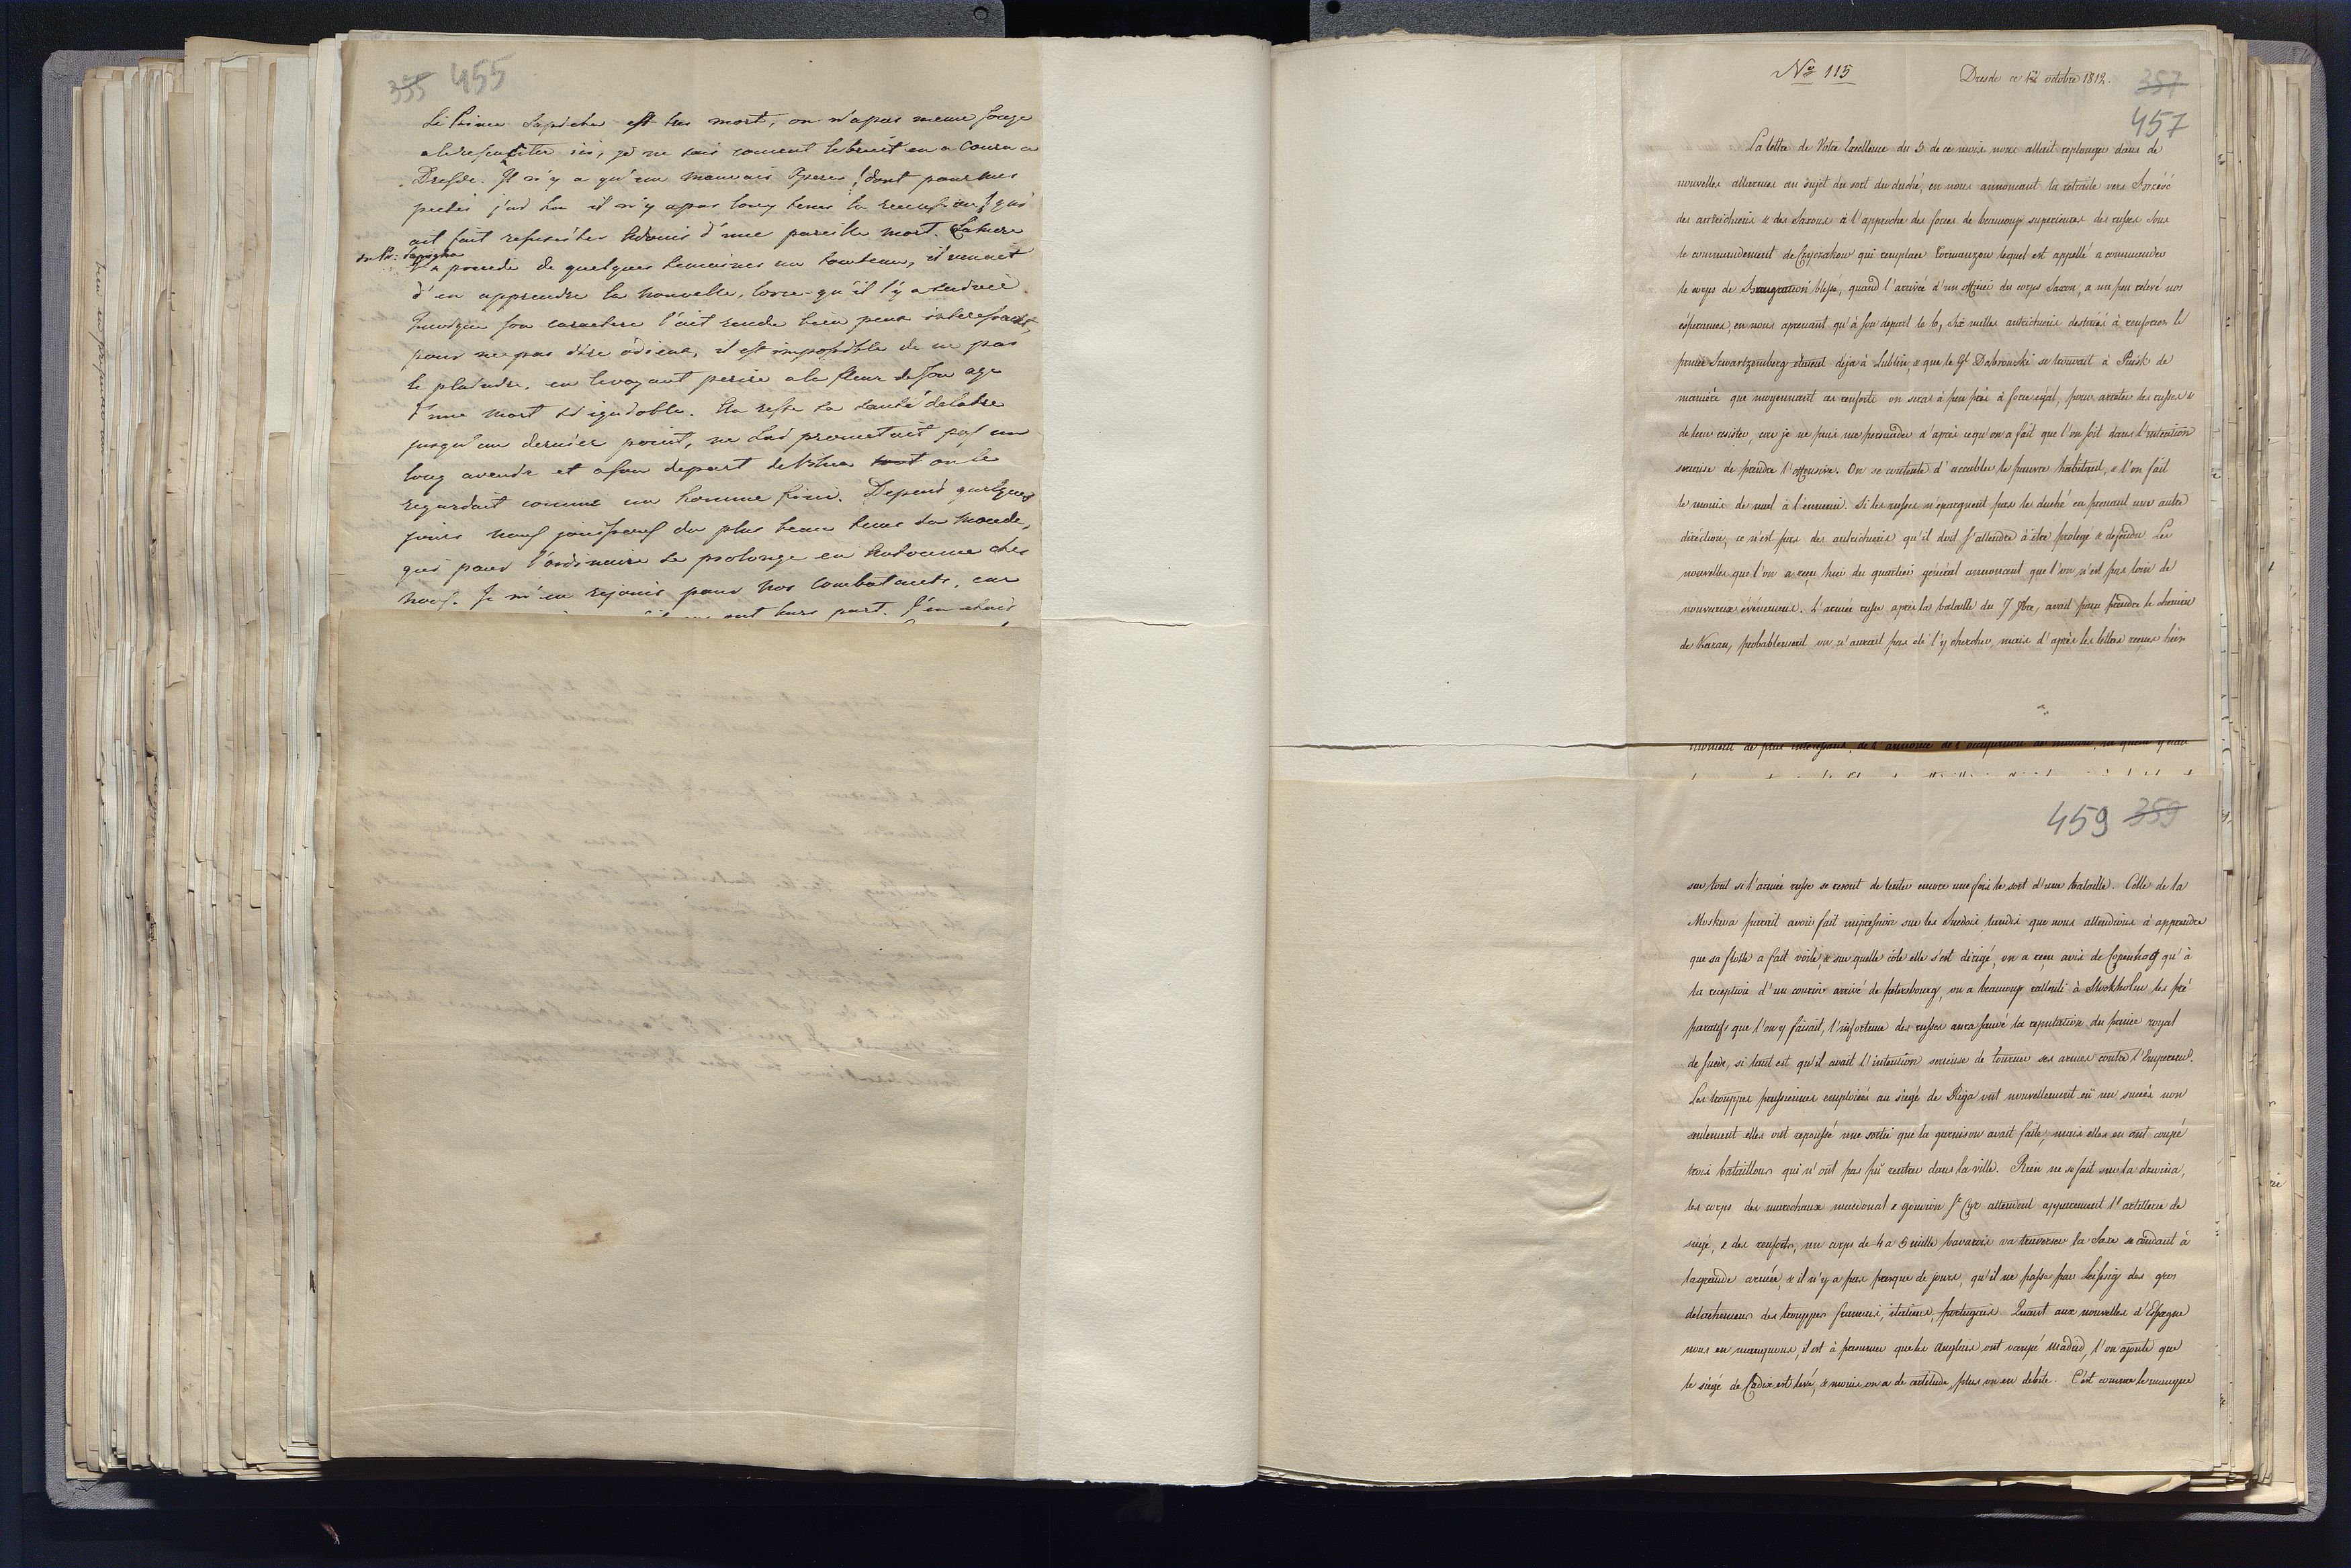 335 455
Le Prince Sapieha est tres mort, on n'a pas meme songé
a le resusciter ici, je ne sais coment le bruit en a couru a
Dresde. Il n'y a qu'un mauvais Opera, dont pour mes
pechés j'ai lu il n'y a pas long tems la recension, qui
ait fait resusciter Adonis d'une pareille mort. La mere
du Pr: Sapieha
l'a precedé de quelques semaines au tombeau, il venait
d'en apprendre la nouvelle, lors-qu'il l'y a suivie.
Quoique son caractere l'ait rendu bien peux interessant,
pour ne pas dire odieux, il est impossible de ne pas
le plaindre, en le voyant perir a la fleur de son age
d'une mort si ignoble. Au reste sa santé delabrée
jusqu'au dernier point, ne lui promettait pas un
long avenir et a son depart de Vilna tout on le
regardait comme un homme fini. Depuis quelques
jours nous jouissons du plus beau tems du monde,
qui pour l'ordinaire se prolonge en Automne chez
nous. Je m'en rejouis pour nos Combatants, car
ont leurs part. J'en etais
No 115
Dresde ce 12 octobre 1812.
357
457
La lettre de Votre Excellence du 5 de ce mois nous allait replonger dans de
nouvelles allarmes au sujet du sort du duché, en nous annoncant la retraite vers
des autrichiens & des Saxons à l'approche des forces de beaucoup superieures des russes sous
le commandement de Czyczakow qui remplace Tormanzow lequel est appellé a commander
le corps de Bangration blessé, quand l'arrivée d'un officier du corps Saxon, a un peu relevé nos
ésperances, en nous aprenant qu'à son depart le 6, dix milles autrichiens destinés à renforcer le
prince Schwartzemberg etaient deja à Lublin & que le Gl Dabrowski se trouvait à Pinsk de
manière que moyennant ces renforts on sera à peu près à force egal, pour arreter les russes &
de leur resister, car je ne puis me persuader d'après ce qu'on a fait que l'on soit dans l'intention
serieuse de prendre l'offensive. On se contente d'accabler le pauvre habitant, & l'on fait
le moins de mal à l'ennemi. Si les russes n'épargnent pas le duché en prenant une autre
direction, ce n'est pas des autrichiens qu'il doit s'attendre à être protegé & defendu. Les
nouvelles que l'on a reçu hier du quartier général annoncent que l'on n'est pas loin de
nouveaux événemens. L'armée russe après la bataille du 7 7bre, avait paru prendre le chemin
de Kazan, probablement on n'aurait pas été l'y chercher, mais d'après les lettres recues hier
moment de plus interessans, de l'annonce de l'occupation de Moscou,
459 359
sur tout si l'armée russe se resout de tenter encore une fois le sort d'une bataille. Celle de la
Moskwa parait avoir fait impression sur les Suedois tandis que nous attendions à apprendre
que sa flotte a fait voile, & sur quelle côte elle s'est dirigé, on a reçu avis de Copenhag qu'à
la reception d'un courier arrivé de petersbourg, on a beaucoup rallenti à Stockholm les pré
paratifs que l'on y faisait, l'infortune des russes aura sauvé la reputation du prince royal
de Suede, si tant est qu'il avait l'intention serieuse de tourner ses armes contre l'Empereur.
Les trouppes prussiennes emploiés au siege de Riga ont nouvellement eü un succès non
seulement elles ont repoussé une sortie que la garnison avait faite, mais elles en ont coupé
trois bataillons qui n'ont pas pü rentrer dans la ville. Rien ne se fait sur la dwina,
les corps des marechaux macdonal & gouvion St Cyr attendent apparement l'artillerie de
siege, & des renforts, un corps de 4 a 5 mille bavarois va traverser la Saxe se rendant à
la grande armée, & il n'y a pas presque de jours, qu'il ne passe par Leipsig des gros
detachemens des trouppes francais, italiens, portugais. Quant aux nouvelles d'Espagne
nous en manquons, il est à presumer que les Anglais ont occupé Madrid, l'on ajoute que
le siege de Cadix est levé, & moins on a de certitude, plus on en debite. C'est comme le manque